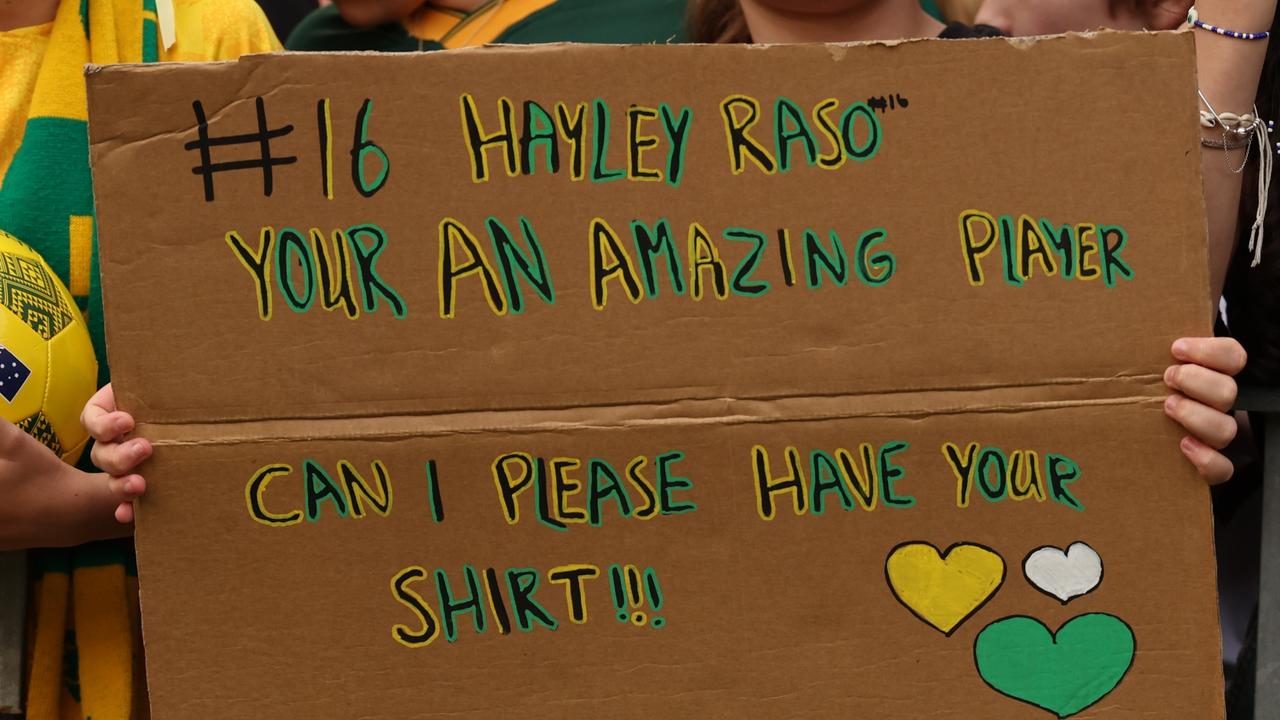 #16 HAYLEY RASO #16
YOUR AN AMAZING PLAYER
CAN I PLEASE HAVE YOUR
SHIRT!!!